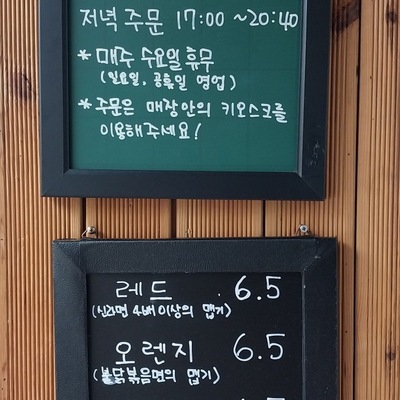 저녁 주문 17:00 ~20:40
* 매주 수요일 휴무
(일요일, 공휴일 영업)
* 주문은 매장안의 키오스크를
이용해주세요!
레드 6.5
(신라면 4배이상의 맵기)
오렌지 6.5
(불닭볶음면의 맵기)